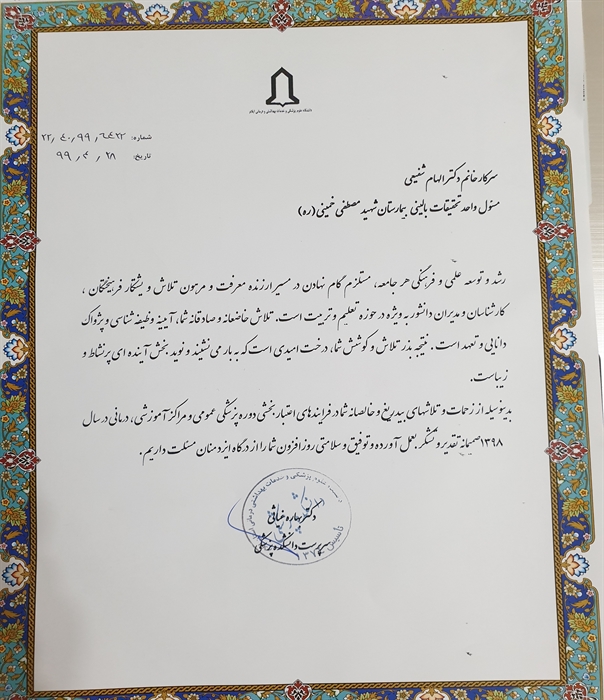 دانشگاه علوم پزشکی و خدمات بهداشتی و درمانی ایلام
شماره: ۲۲/۴۰/۹۹/۶۴۲۲
تاریخ: ۹۹/۴/۲۸
سرکار خانم دکتر الهام شفیعی
مسئول واحد تحقیقات بالینی بیمارستان شهید مصطفی خمینی (ره)
رشد و توسعه علمی و فرهنگی هر جامعه، مستلزم گام نهادن در مسیر ارزنده معرفت و مرهون تلاش و پشتکار فرهیختگان ،
کارشناسان و مدیران دانشور به ویژه در حوزه تعلیم و تربیت است. تلاش خاضعانه و صادقانه شما، آیینه وظیفه شناسی و پژواک
دانایی و تعهد است. نتیجه بذر تلاش و کوشش شما، درخت امیدی است که به بار می نشیند و نوید بخش آینده ای پرنشاط و
زیباست.
بدینوسیله از زحمات و تلاشهای بیدریغ و خالصانه شما در فرایندهای اعتباربخشی دوره پزشکی عمومی و مراکز آموزشی، درمانی در سال
۱۳۹۸ صمیمانه تقدیر و تشکر بعمل آورده و توفیق و سلامتی روز افزون شما را از درگاه ایزد منان مسئلت داریم.
دکتر بهاره غیاثی
سرپرست دانشکده پزشکی
علوم پزشکی و خدمات بهداشتی درمانی
تأسیس